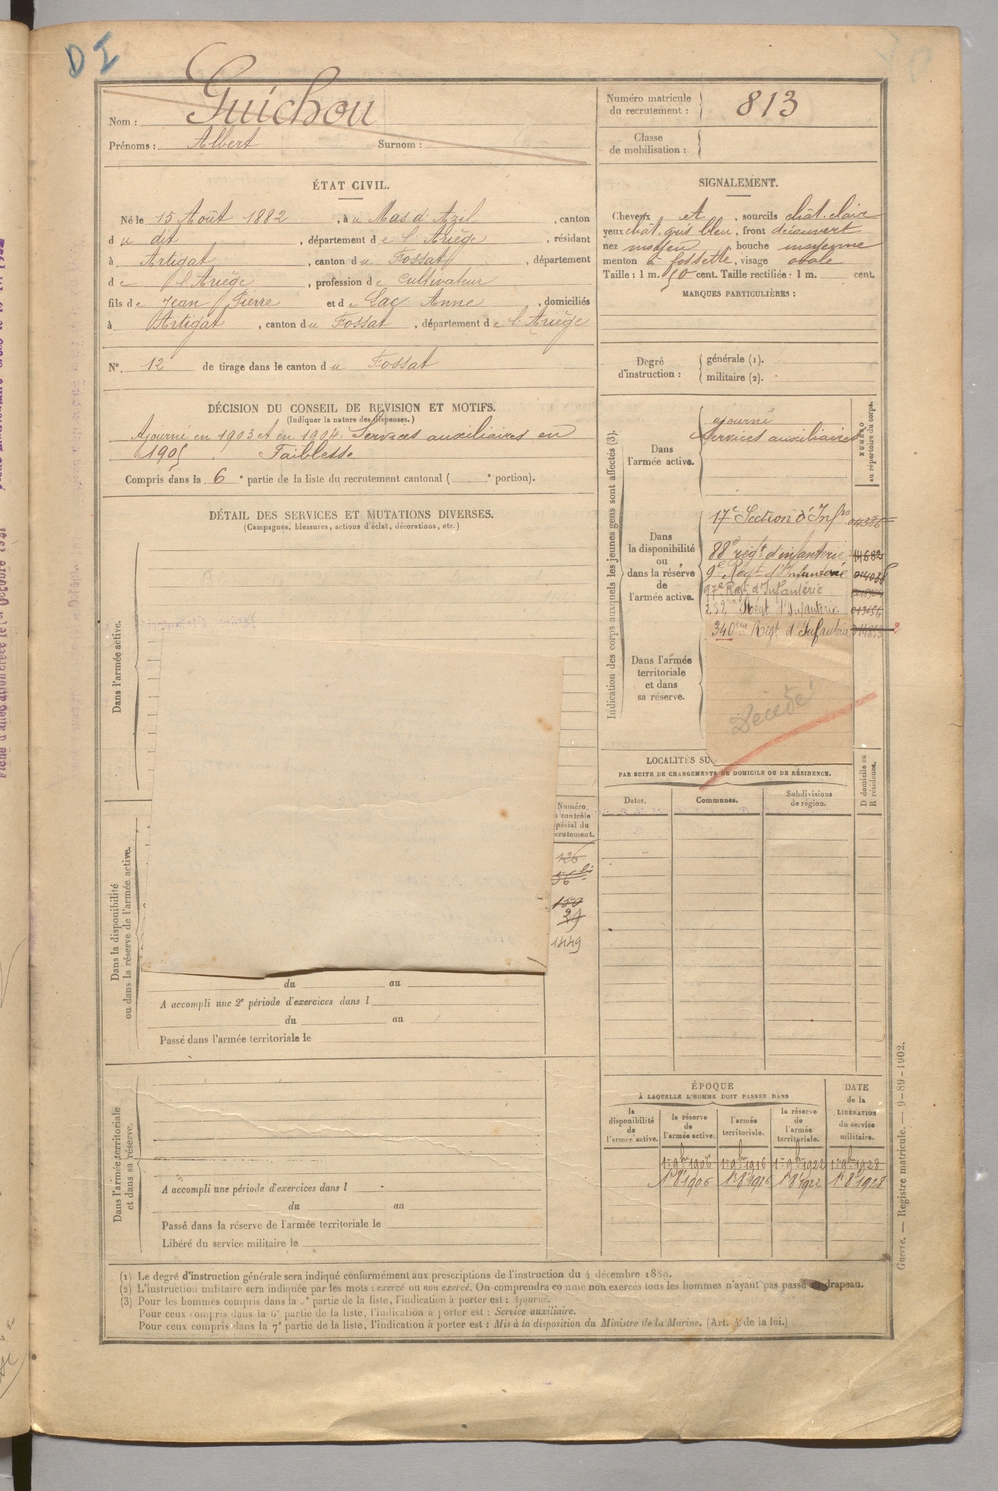 D I
Nom : Guichou
Prénoms : Albert Surnom :
Numéro matricule
du recrutement : 813
Classe
de mobilisation :
ÉTAT CIVIL.
Né le 15 Août 1882, à u Mas d'Azil, canton
d u dit, département d e l'Ariège, résidant
à Artigat, canton d u Fossat, département
d e l'Ariège, profession de cultivateur
fils de Jean Pierre et d e Lac Anne, domiciliés
à Artigat, canton d u Fossat, département d e l'Ariège
N° 12 de tirage dans le canton d u Fossat
SIGNALEMENT.
Cheveux et, sourcils chât. clair
yeux chât. gris bleu, front découvert
nez moyen bouche moyenne
menton à fossette, visage ovale
Taille : 1 m. 50 cent. Taille rectifiée : 1 m. cent.
MARQUES PARTICULIÈRES :
Degré
d'instruction :
générale (1).
militaire (2).
DÉCISION DU CONSEIL DE REVISION ET MOTIFS.
(Indiquer la nature des dispenses.)
Ajourné en 1903 et en 1904. Services auxiliaires en
1905. Faiblesse
Compris dans la 6e partie de la liste du recrutement cantonal ( e portion).
DÉTAIL DES SERVICES ET MUTATIONS DIVERSES.
(Campagnes, blessures, actions d'éclat, décorations, etc.)
Indication des corps auxquels les jeunes gens sont affectés (3).
NUMÉRO
au répertoire du corps.
Dans
l'armée active.
ajourné
Services auxiliaires
Dans
la disponibilité
ou
dans la réserve
de
l'armée active.
17e Section d'Infrs
88e régt d'infanterie
9e Regt d'Infanterie
97e Regt d'Infanterie
252me Régt d'Infanterie
340me Régt d'Infanterie
Dans l'armée
territoriale
et dans
sa réserve.
Décédé
LOCALITÉS SU
PAR SUITE DE CHANGEMENTS DE DOMICILE OU DE RÉSIDENCE.
Dates.
Communes.
Subdivisions
de région.
D domicile ou
R résidence.
Dans l'armée active.
Dans la disponibilité
ou dans la réserve de l'armée active.
Numéro
contrôle
spécial du
recrutement.
126
56 bis
29
1449
du au
A accompli une 2e période d'exercices dans l
du au
Passé dans l'armée territoriale le
Dans l'armée territoriale
et dans sa réserve.
A accompli une période d'exercices dans l
du au
Passé dans la réserve de l'armée territoriale le
Libéré du service militaire le
ÉPOQUE
À LAQUELLE L'HOMME DOIT PASSER DANS
la
disponibilité
de
l'armée active.
la réserve
de
l'armée active.
l'armée
territoriale.
la réserve
de
l'armée
territoriale.
DATE
de la
LIBÉRATION
du service
militaire.
1er 9bre 1906 1er 9bre 1916 1er 9bre 1922 1er 9bre 1928
1er 8bre 1906 1er 8bre 1916 1er 8bre 1922 1er 8bre 1928
Guerre. — Registre matricule. — 9-89-1902.
(1) Le degré d'instruction générale sera indiqué conformément aux prescriptions de l'instruction du 4 décembre 1889.
(2) L'instruction militaire sera indiquée par les mots : exercé ou non exercé. On comprendra comme non exercés tous les hommes n'ayant pas passé au drapeau.
(3) Pour les hommes compris dans la 5e partie de la liste, l'indication à porter est : Ajourné.
Pour ceux compris dans la 6e partie de la liste, l'indication à porter est : Service auxiliaire.
Pour ceux compris dans la 7e partie de la liste, l'indication à porter est : Mis à la disposition du Ministre de la Marine. (Art. 4 de la loi.)